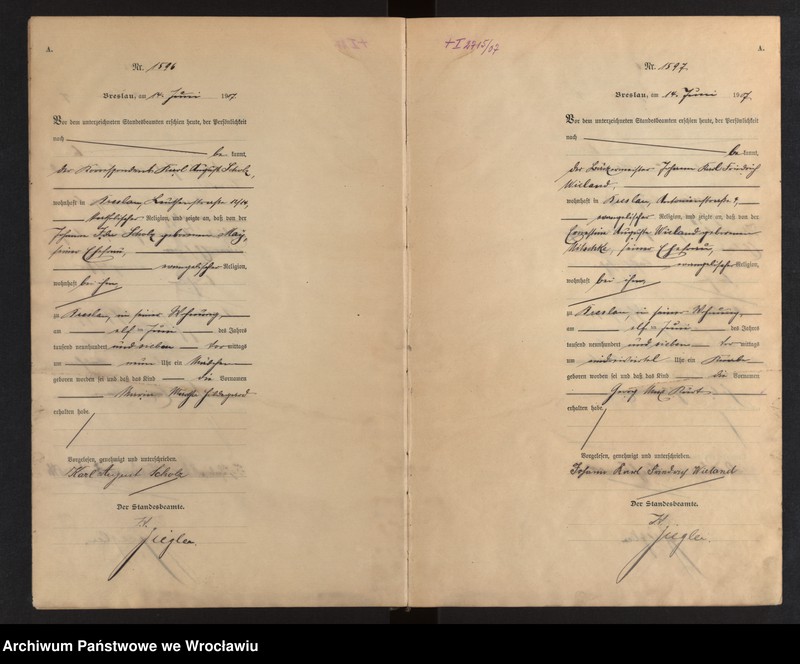 A.
Nr. 1596
Breslau, am 14. Juni 1907
Vor dem unterzeichneten Standesbeamten erschien heute, der Persönlichkeit
nach
be kannt,
der Korrespondent Karl August Scholz,
wohnhaft in Breslau, Leuthenstraße
katholischer Religion, und zeigte an, daß von der
Scholz geborenen
seiner Ehefrau,
evangelischer Religion,
wohnhaft bei ihm
zu Breslau, in seiner Wohnung,
am elf ten Juni des Jahres
tausend neunhundert und sieben Vor mittags
um neun Uhr ein Mädchen
geboren worden sei und daß das Kind die Vornamen
Hildegard
erhalten habe.
Vorgelesen, genehmigt und unterschrieben.
Karl August Scholz
Der Standesbeamte.
Ziegler
+I 2815/07
A.
Nr. 1597.
Breslau, am 14. Juni 1907.
Vor dem unterzeichneten Standesbeamten erschien heute, der Persönlichkeit
nach
be kannt,
der Johann Karl Friedrich
Wieland,
wohnhaft in Breslau, Antonienstraße 9,
evangelischer Religion, und zeigte an, daß von der
Auguste Wieland geborenen
Nitschke, seiner Ehefrau,
evangelischer Religion,
wohnhaft bei ihm
zu Breslau, in seiner Wohnung,
am elf ten Juni des Jahres
tausend neunhundert und sieben Vor mittags
um Uhr ein Knabe
geboren worden sei und daß das Kind die Vornamen
Georg Max Kurt
erhalten habe.
Vorgelesen, genehmigt und unterschrieben.
Johann Karl Friedrich Wieland
Der Standesbeamte.
Ziegler
Archiwum Państwowe we Wrocławiu